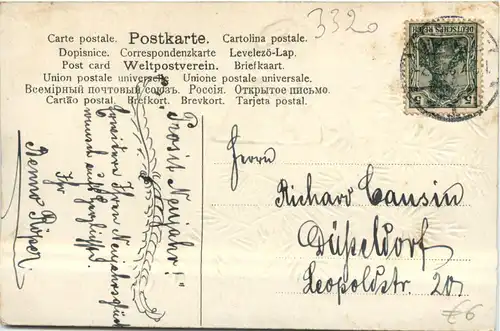 3320
Carte postale. Postkarte. Cartolina postale.
Dopisnice. Correspondenzkarte Levelező-Lap.
Post card Weltpostverein. Briefkaart.
Union postale universelle. Unione postale universale.
Всемірный почтовый союзъ. Россія. Открытое письмо.
Cartão postal. Brefkort. Brevkort. Tarjeta postal.
DEUTSCHES REICH
5 5
Prosit Neujahr!
Ihren Neujahrsglück
wunsch aufs herzlichste.
Ihr
Benno
Herrn
Richard Causin
Düsseldorf
Leopoldstr. 20
€6